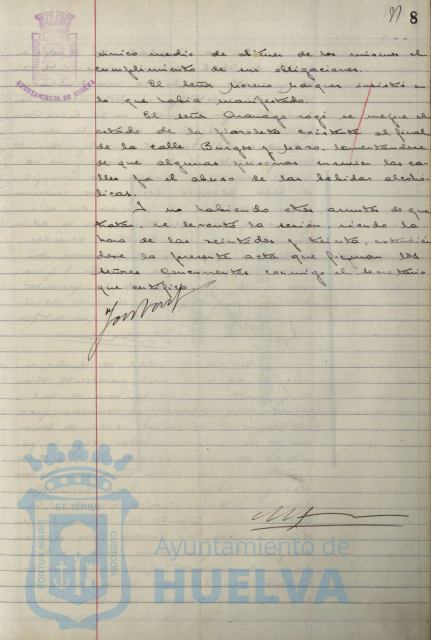 8
AYUNTAMIENTO DE HUELVA
único medio de obtener de los mismos el
cumplimiento de sus obligaciones.
El señor Moreno Marques insistió en
lo que había manifestado.
El señor rogó se mejore el
estado de la existente al final
de la calle Burgos y Mazo, lamentandose
de que algunas personas ensucien las ca-
lles por el abuso de las bebidas alcoho-
licas.
Y no habiendo otros asuntos de que
tratar, se levantó la sesión, siendo la
hora de las veintidos y treinta, extendien-
dose la presente acta que firman los
señores concurrentes conmigo el Secretario
que certifico.
PORTUS MARIS
ET TERRÆ
CUSTODIA
Ayuntamiento de
HUELVA